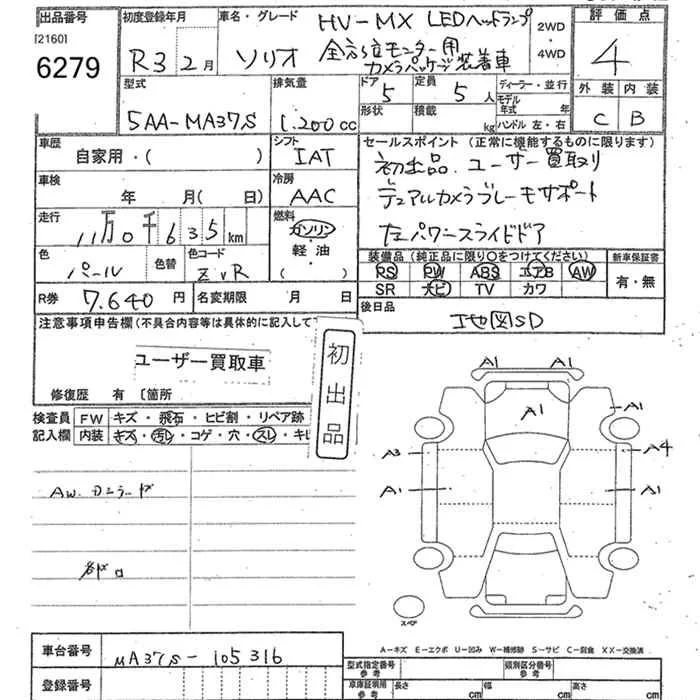 出品番号
[2160]
6279
初度登録年月
R3 2月
車名・グレード
ソリオ
HV-MX LEDヘッドランプ
全方位モニター用
カメラパッケージ装着車
2WD
・
4WD
評価点
4
外装 内装
C B
型式
5AA-MA37S
排気量
1.200cc
ドア 5
定員 5人
形状
積載 kg
ディーラー・並行
モデル年式 年
ハンドル 左・右
車歴
自家用・( )
シフト
IAT
車検
年 月( 日)
冷房
AAC
走行
11万0千635km
燃料
ガソリン
軽油
( )
色
パール
色替
色コード
ZVR
R券 7.640円
名変期限 月 日
セールスポイント (正常に機能するものに限ります)
初出品. ユーザー買取り
デュアルカメラブレーキサポート
左パワースライドドア
装備品 (純正品に限り○をつけてください)
PS PW ABS エアB AW
SR ナビ TV カワ
新車保証書
有・無
後日品
地図SD
注意事項申告欄(不具合内容等は具体的に記入して下
ユーザー買取車
初出品
修復歴 有 〔箇所
検査員
記入欄
FW キズ・飛石・ヒビ割・リペア跡
内装 キズ・汚レ・コゲ・穴・スレ・キレ
AW.
A1 A1
A1
A1
A3 A4
A1 A1
スペア
A-キズ E-エクボ U-凹み W-補修跡 S-サビ C-腐食 XX-交換済
車台番号 MA37S-105316
登録番号
型式指定番号
参考
類別区分番号
参考
車庫証明用
参考
長さ cm
幅 cm
高さ cm